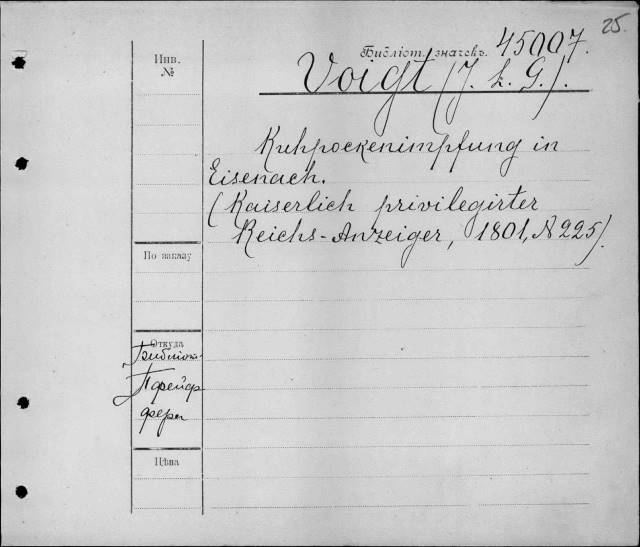 25.
Библіот. значекъ. 45007.
Инв.
№
Voigt (J. L. G.).
Kuhpockenimpfung in
Eisenach.
(Kaiserlich privilegirter
Reichs-Anzeiger, 1801, № 225).
По заказу
Откуда
Библіот.
Пфейф-
фера
Цѣна